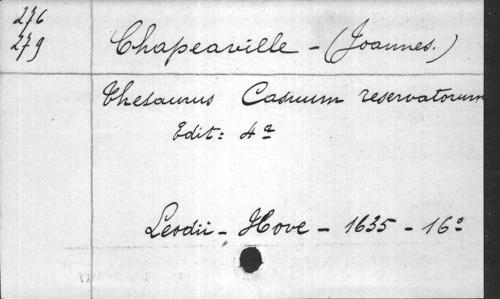 276
279
Chapeaville - (Joannes.)
Thesaurus Casuum reservatorum
Edit: 4ª
Leodii - Hove - 1635 - 16º